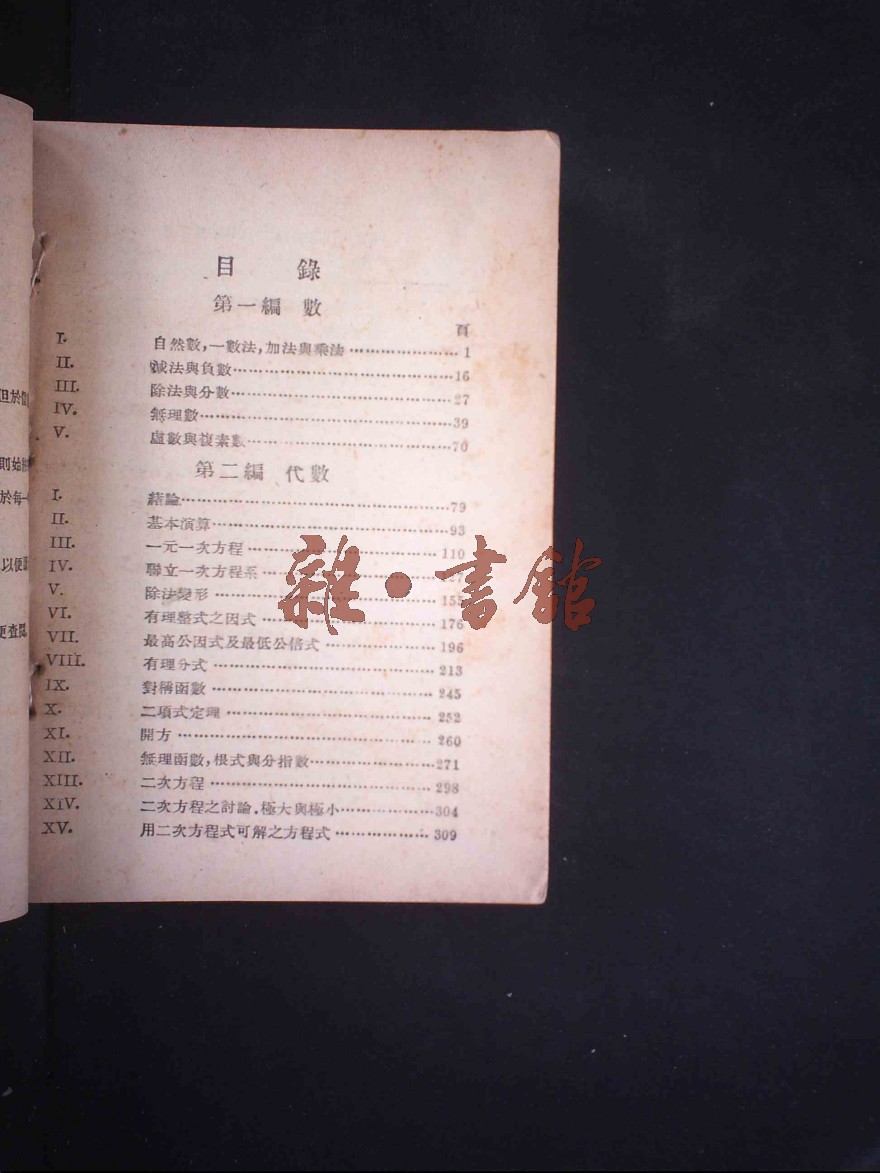 目 錄
第一編 數
頁
I. 自然數,一數法,加法與乘法 1
II. 減法與負數 16
III. 除法與分數 27
IV. 無理數 39
V. 虛數與複素數 70
第二編 代數
I. 緒論 79
II. 基本演算 93
III. 一元一次方程 110
IV. 聯立一次方程系 127
V. 除法變形 155
VI. 有理整式之因式 176
VII. 最高公因式及最低公倍式 196
VIII. 有理分式 213
IX. 對稱函數 245
X. 二項式定理 252
XI. 開方 260
XII. 無理函數,根式與分指數 271
XIII. 二次方程 298
XIV. 二次方程之討論.極大與極小 304
XV. 用二次方程式可解之方程式 309
雜·書館
但於
則始
於每一
以便
更查閱